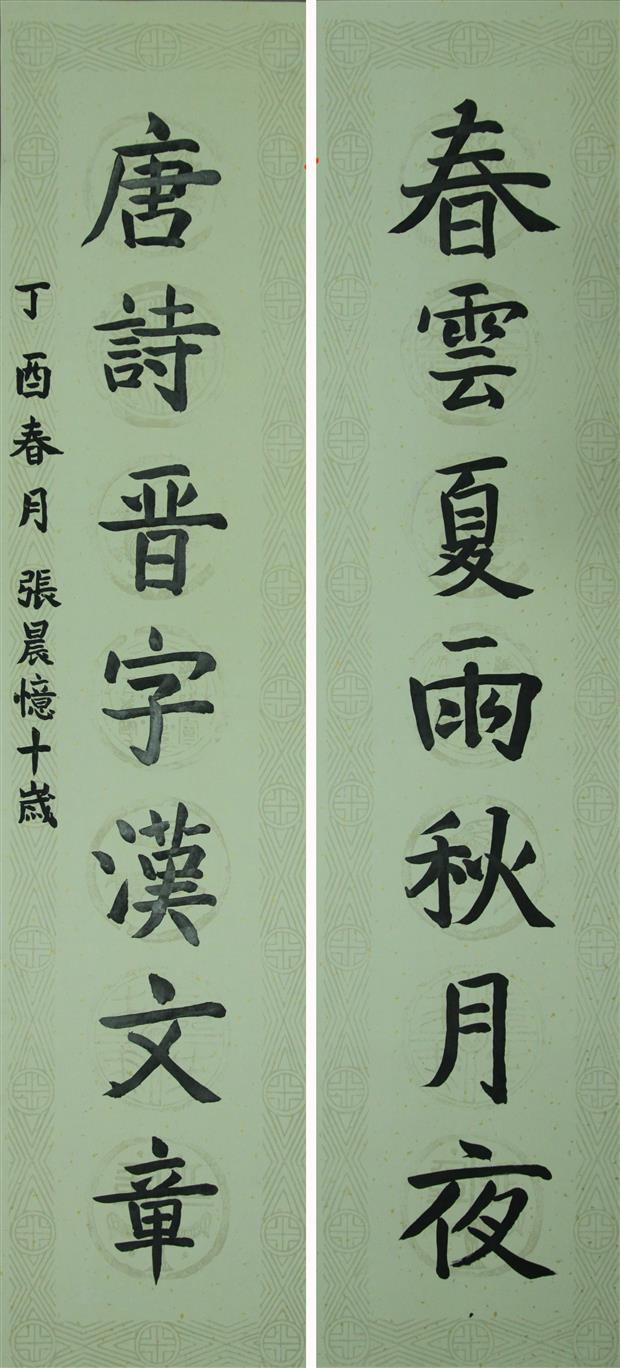 春雲夏雨秋月夜
唐詩晋字漢文章
丁酉春月 張晨憶十歲